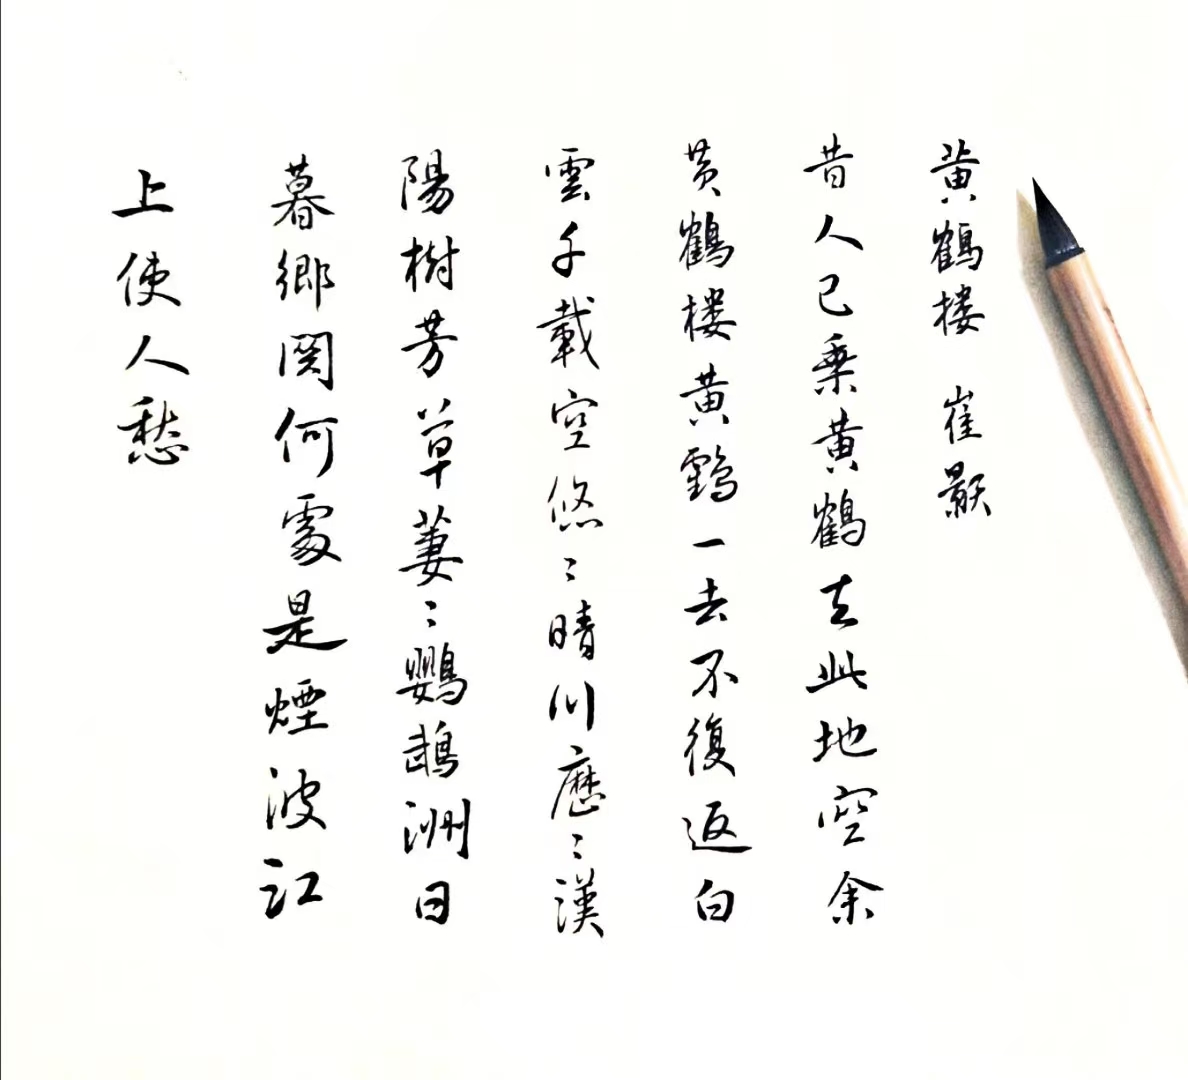 黄鶴楼 崔顥
昔人已乘黄鶴去此地空余
黄鶴楼黄鶴一去不復返白
雲千載空悠〻晴川歷〻漢
陽樹芳草萋〻鸚鵡洲日
暮鄉関何處是煙波江
上使人愁